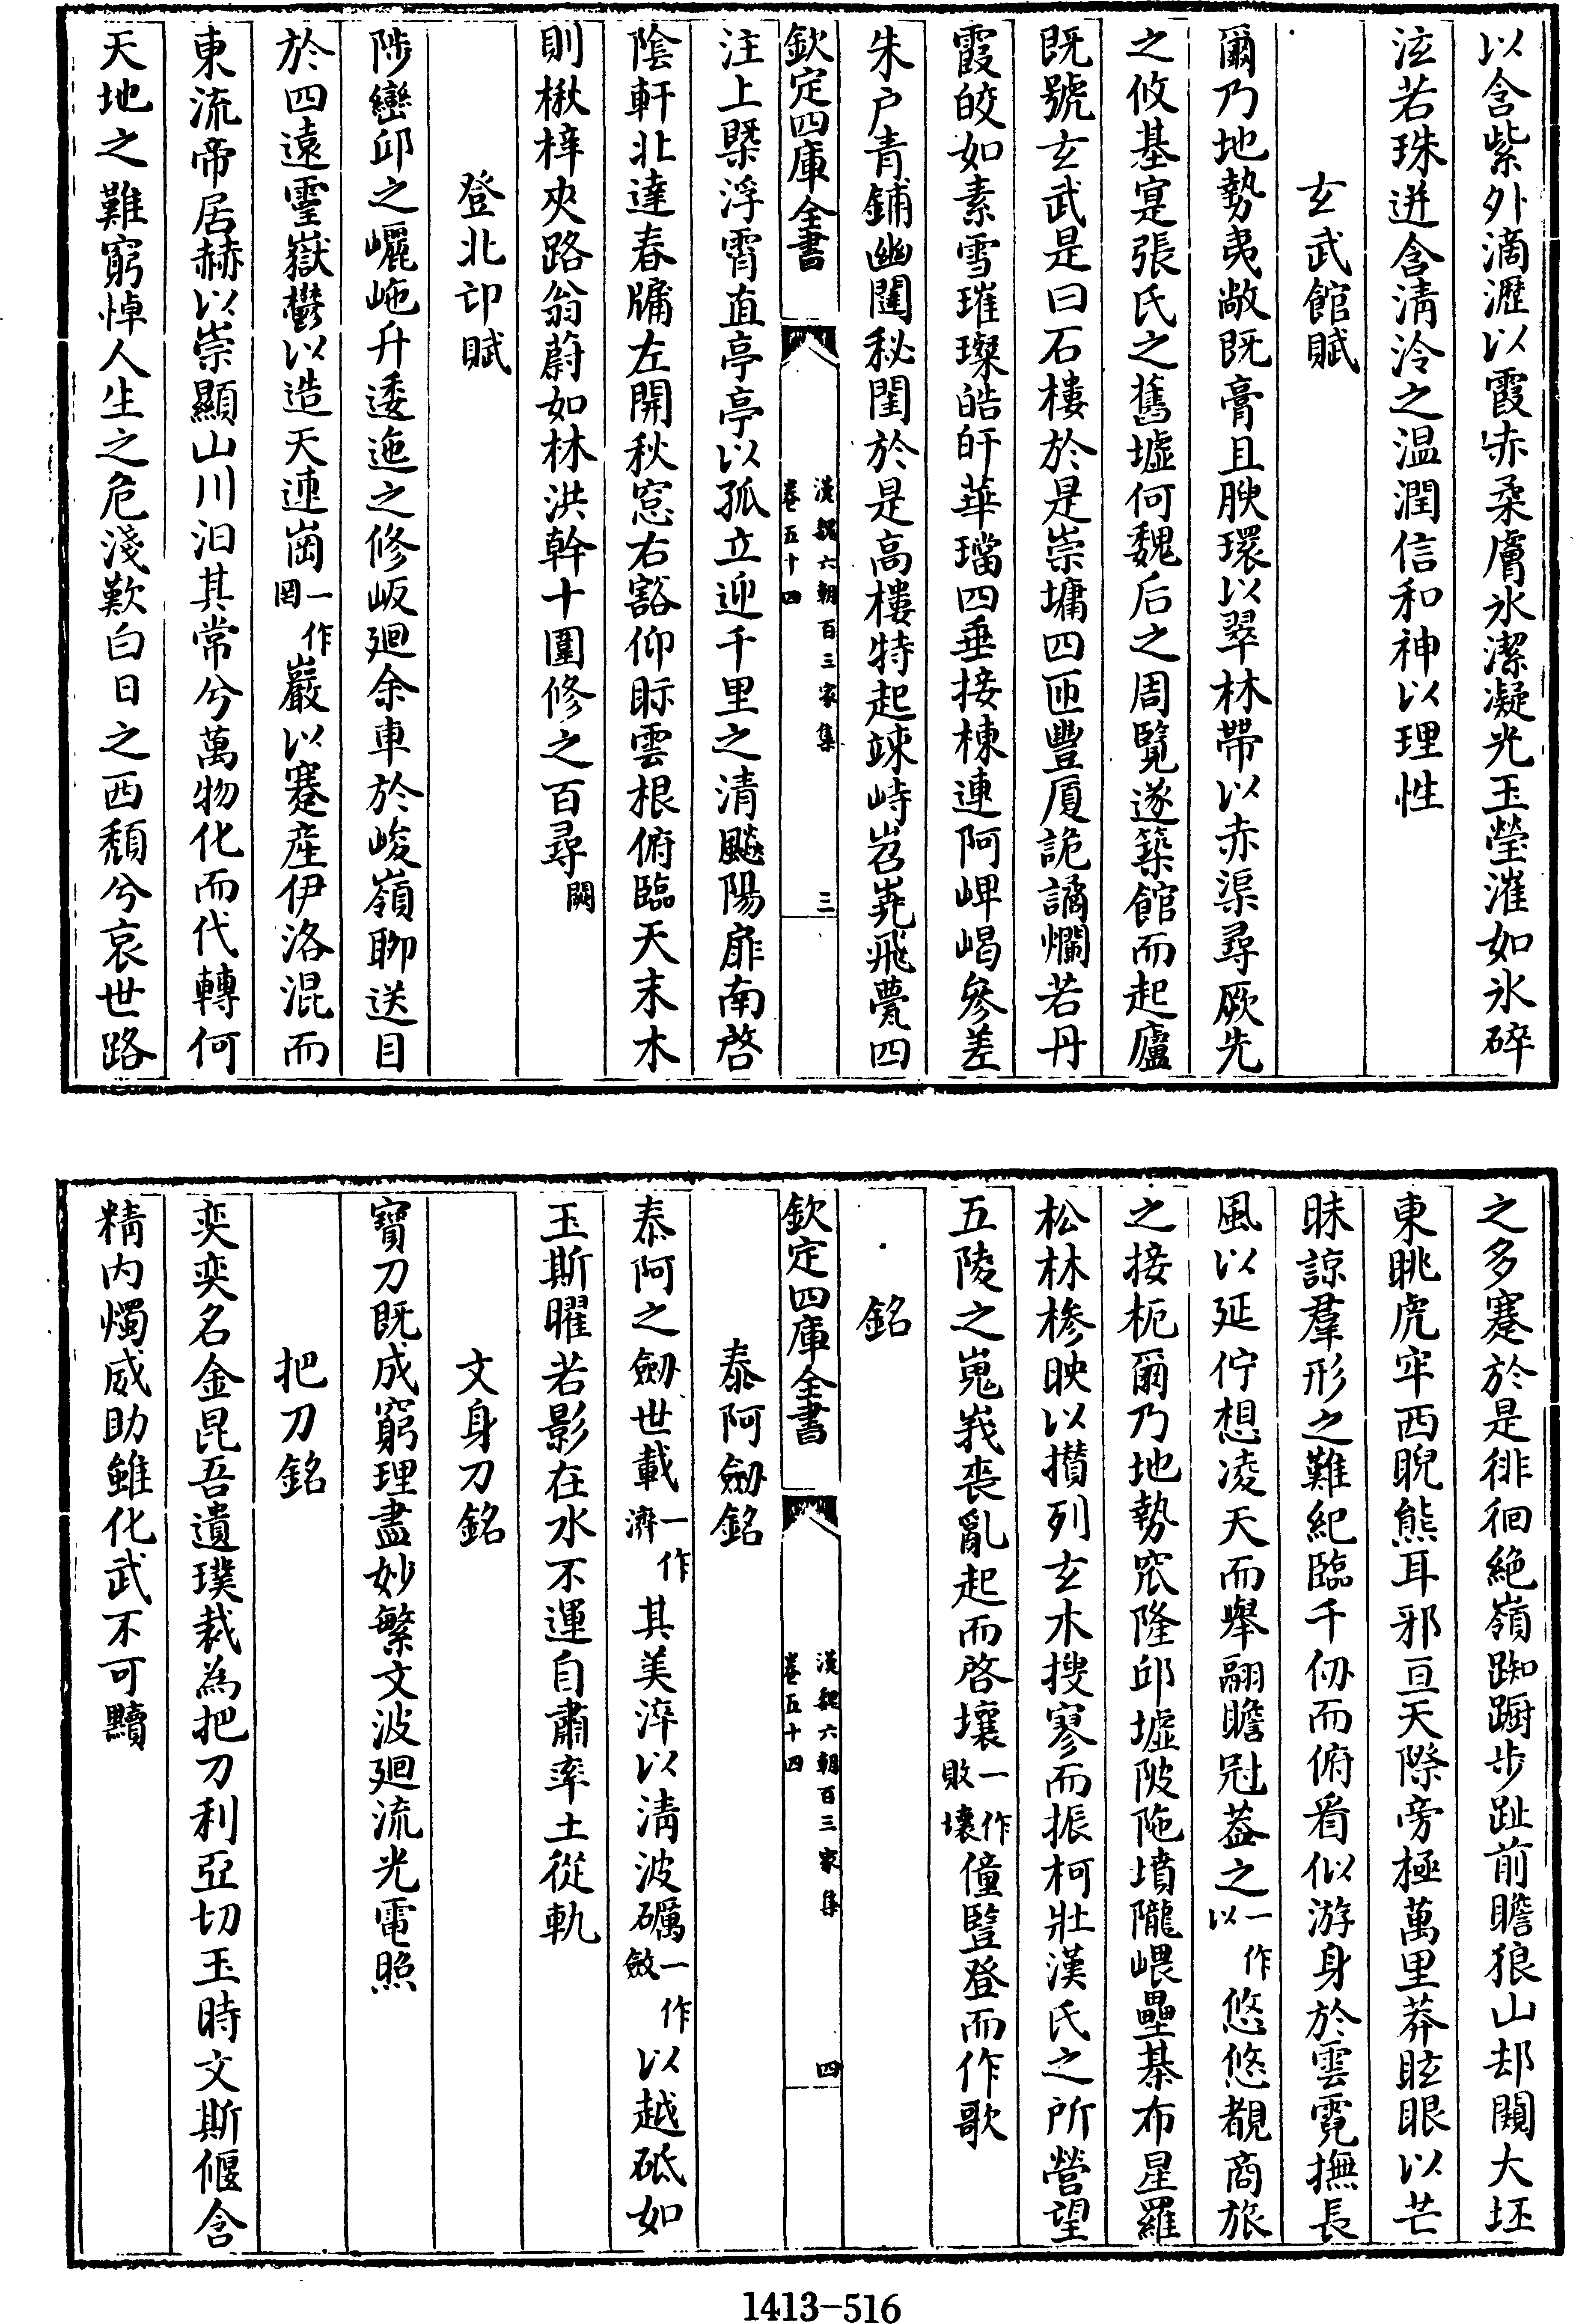 以含紫外滴瀝以霞赤柔膚氷潔凝光玉瑩漼如氷碎
泫若珠迸含清泠之温潤信和神以理性
玄武館賦
爾乃地勢夷敞既膏且腴環以翠林帶以赤渠尋厥先
之攸基寔張氏之舊墟何魏后之周覽遂築館而起廬
既號玄武是曰石樓於是崇墉四匝豐厦詭譎爛若丹
霞皎如素雪璀璨皓旰華璫四垂接棟連阿岬嵑參差
朱户青鋪幽闥秘闈於是高樓特起竦峙岧嶤飛甍四
欽定四庫全書
漢魏六朝百三家集
卷五十四
三
注上槩浮霄直亭亭以孤立迎千里之清飈陽扉南啓
陰軒北達春牖左開秋窓右豁仰眎雲根俯臨天末木
則楸梓夾路蓊蔚如林洪幹十圍修之百尋闕
登北邙賦
陟巒邱之㠣崺升逶迤之修岅廻余車於峻嶺聊送目
於四遠靈嶽鬱以造天連崗一作罔巖以蹇産伊洛混而
東流帝居赫以崇顯山川汨其常兮萬物化而代轉何
天地之難窮悼人生之危淺歎白日之西頹兮哀世路
之多蹇於是徘徊絶嶺踟蹰步趾前瞻狼山却闚大坯
東眺虎牢西睨熊耳邪亘天際旁極萬里莽眩眼以芒
昧諒羣形之難紀臨千仞而俯看似游身於雲霓撫長
風以延佇想凌天而舉翮瞻冠葢之一作以悠悠覩商旅
之接枙爾乃地勢窊隆邱墟陂陁墳隴嵔壘棊布星羅
松林槮映以攢列玄木搜寥而振柯壯漢氏之所營望
五陵之嵬峩喪亂起而啓壤一作敗壞僮豎登而作歌
銘
欽定四庫全書
漢魏六朝百三家集
卷五十四
四
泰阿劒銘
泰阿之劒世載一作濟其美淬以清波礪一作斂以越砥如
玉斯曜若影在水不運自肅率土從軌
文身刀銘
寶刀既成窮理盡妙繁文波廻流光電照
把刀銘
奕奕名金昆吾遺璞裁為把刀利亞切玉時文斯偃含
精内燭威助雖化武不可黷
1413-516